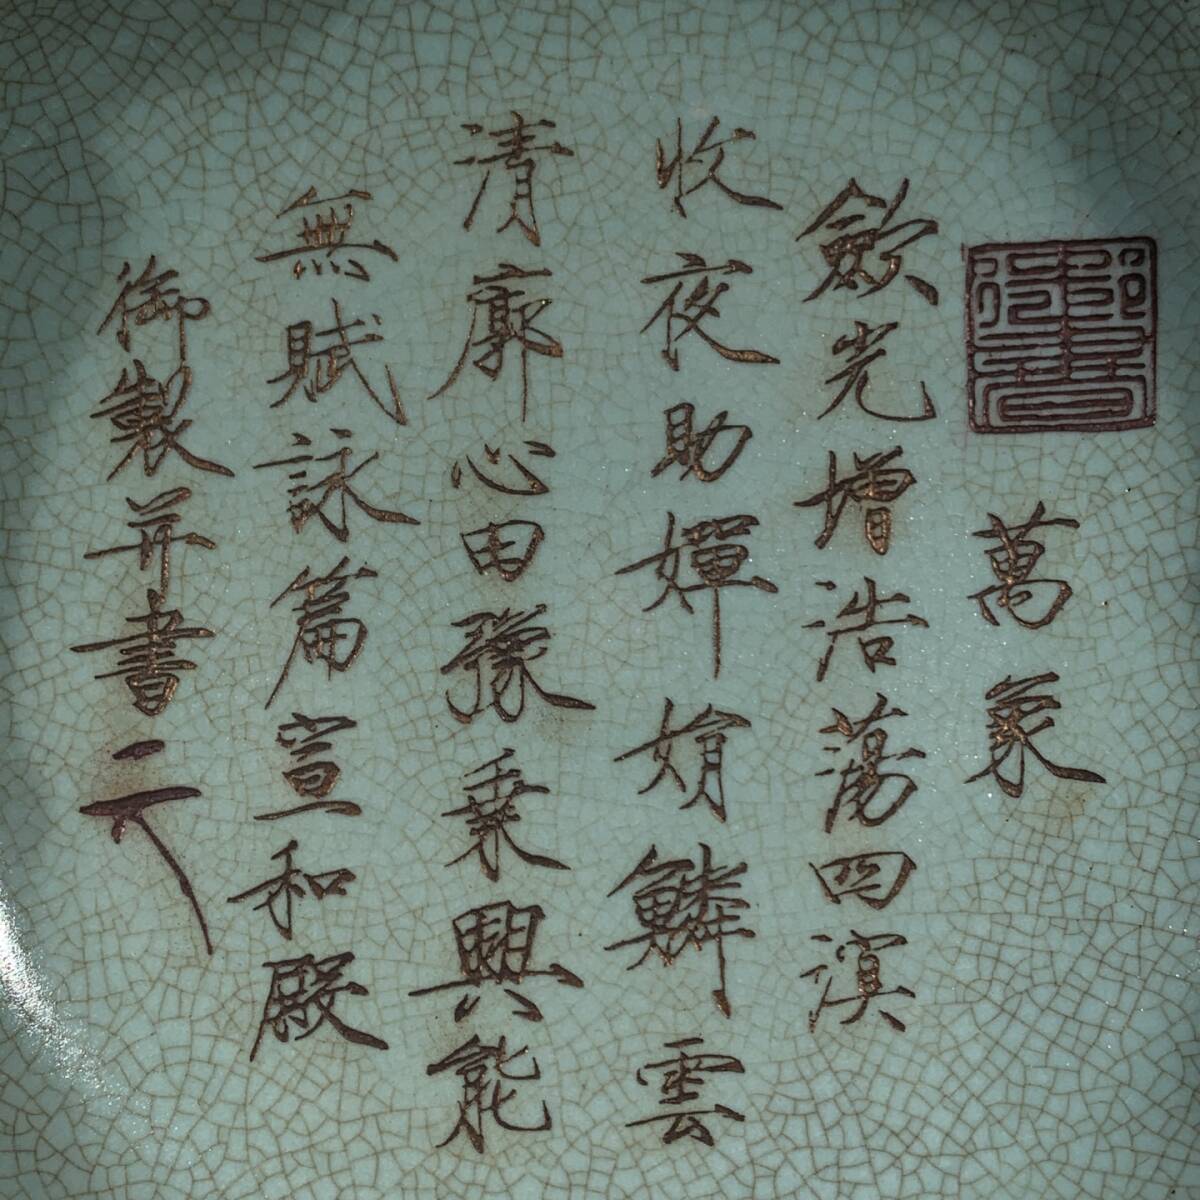 御書
萬象
歛光增浩蕩四溟
收夜助嬋娟鱗雲
清廓心田豫乗興能
無賦詠篇宣和殿
御製并書